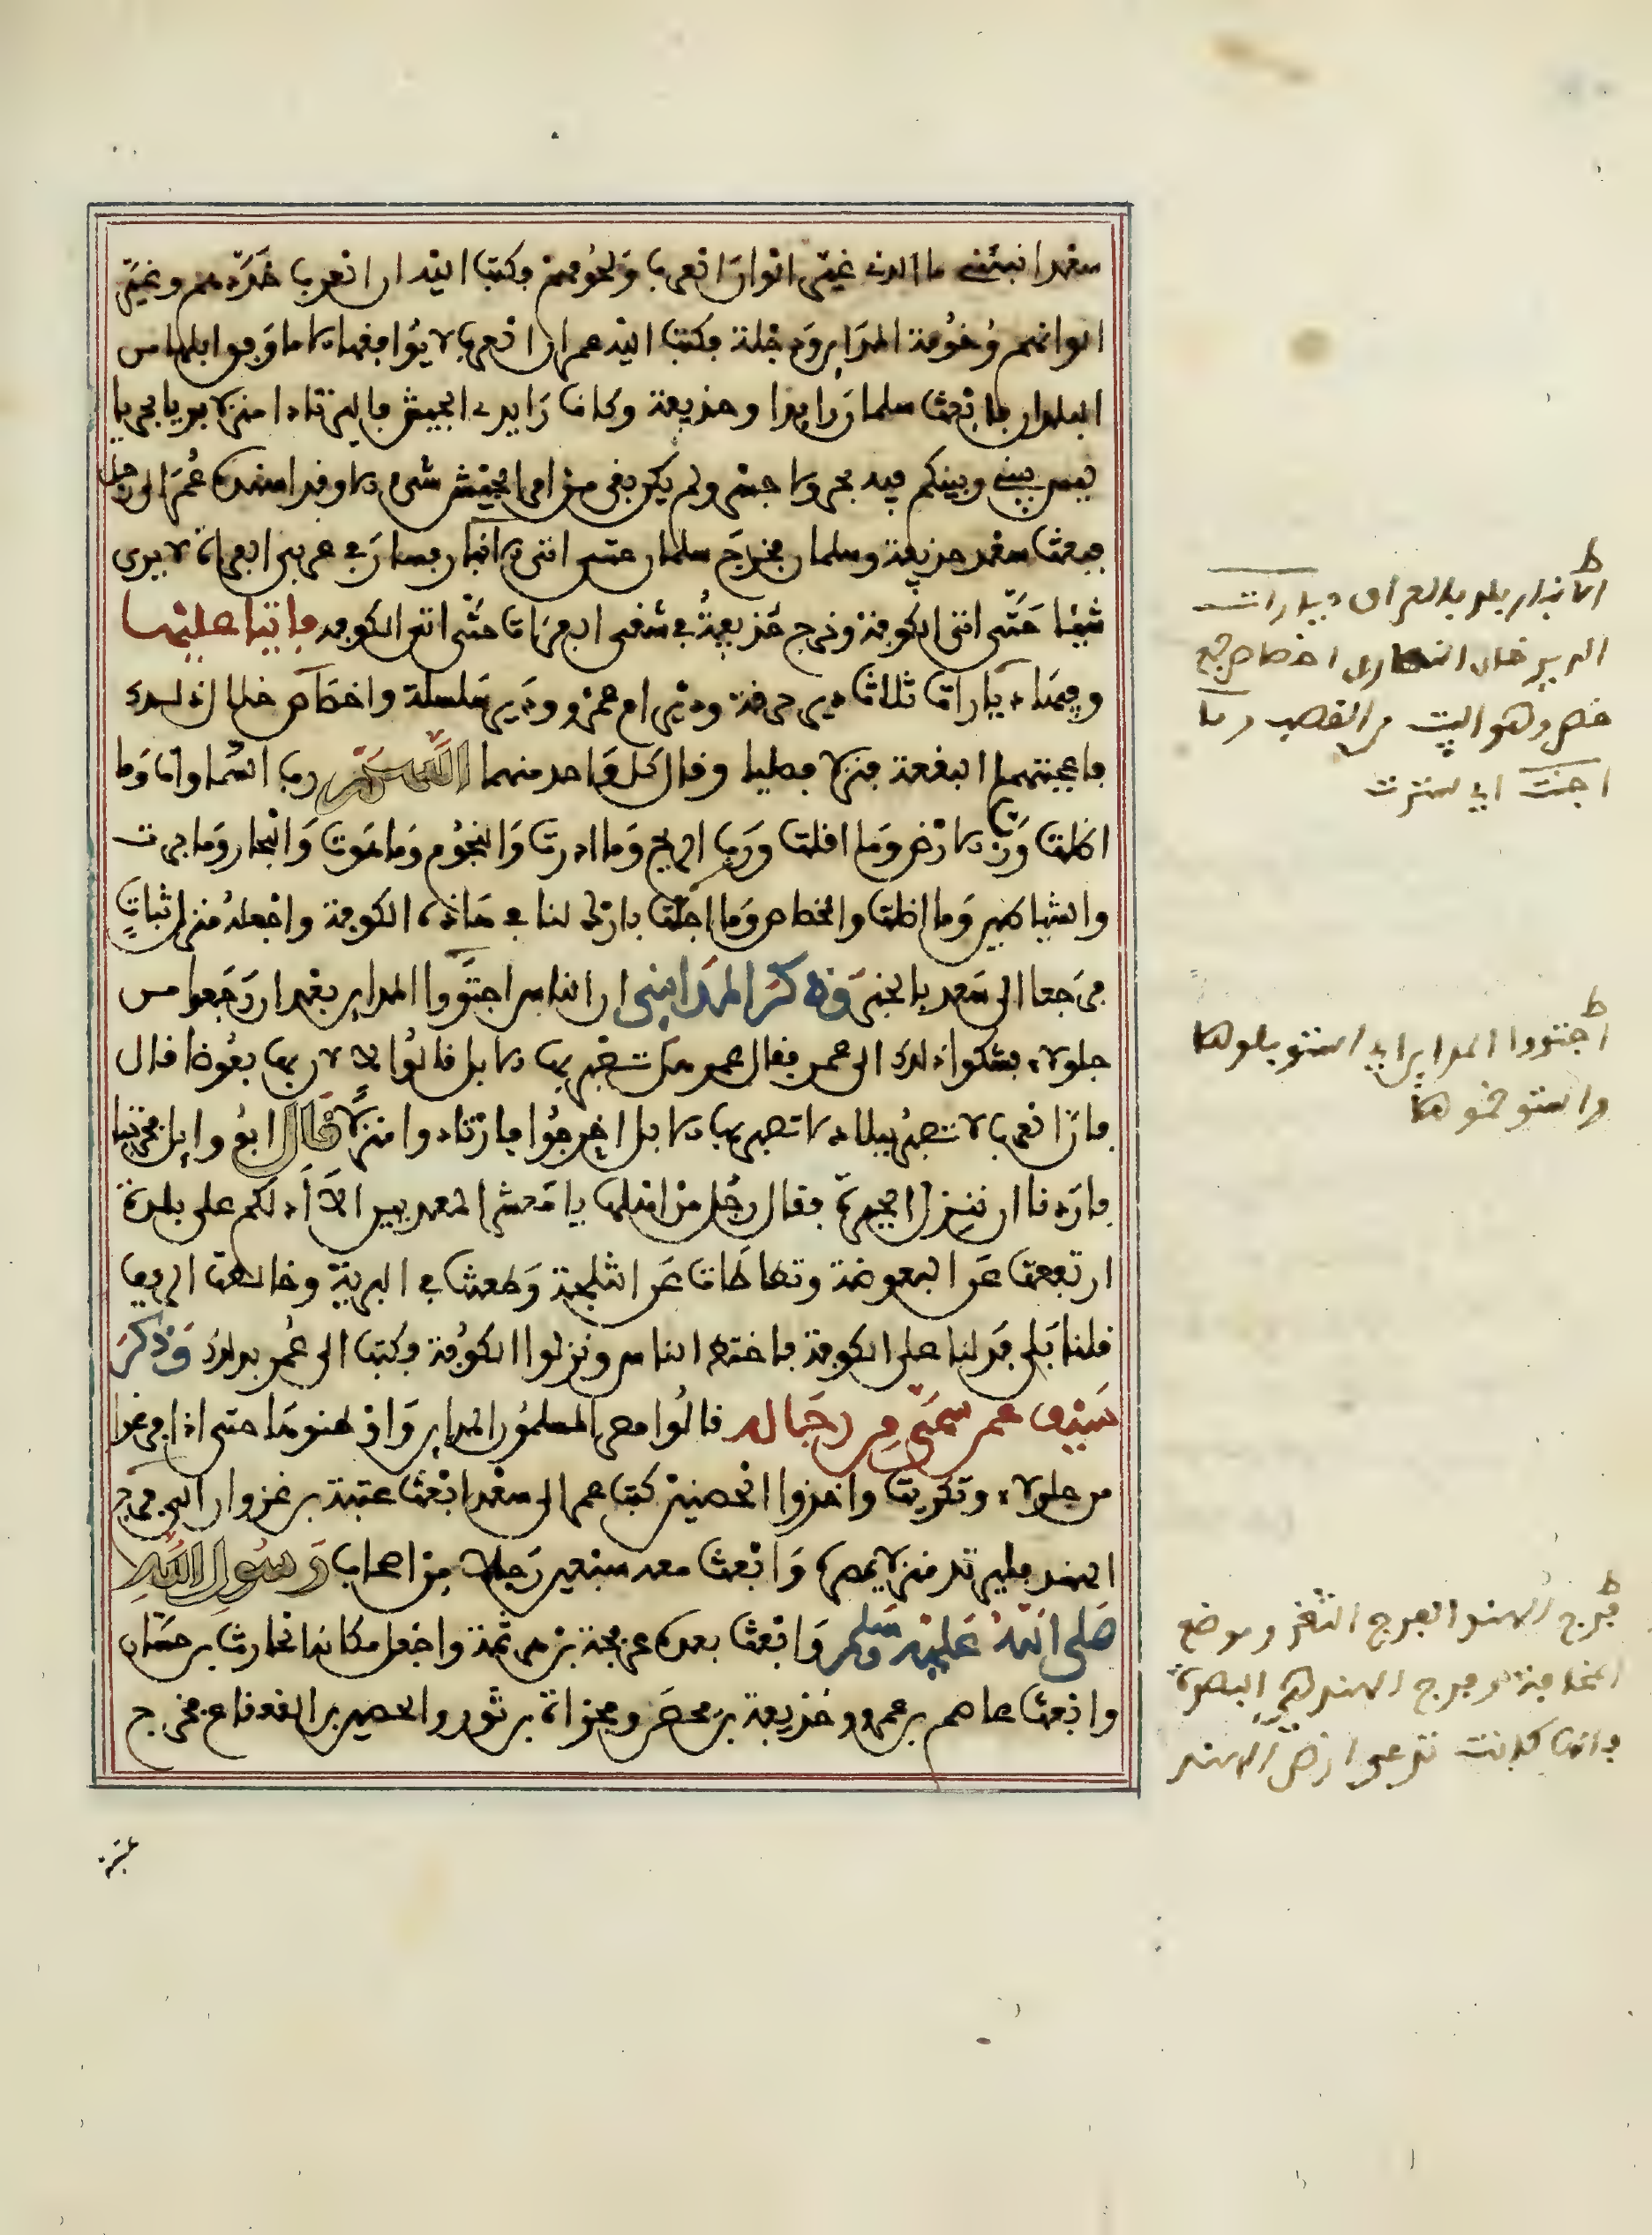 سعد انبئني ما الذي غيّر الوان العرب ولحومهم فكتب اليه ان العرب خدّدهم وغيّر
الوانهم وُخُومة المداين ودجلة فكتب اليه عمر ان العرب لا يُوافقها الا ما وافق ابلها من
البلدان فابعث سلمان رايدا وحذيفة وكانا رايدي الجيش فاليرتادا منزلا بريا بحريا
ليس بيني وبينكم فيه بحر ولا جسر ولم يكن بقي من امر الجيش شيء الا وقد اسنده عُمر الى رجل
فبعث سعد حذيفة وسلمان فخرج سلمان حتى اتى الانبار فسار في غربي الفرات لا يرى
شيئا حتّى اتى الكوفة وخرج حُذيفةُ في شرقي الفرات حتّى اتى الكوفة فاتيا عليها
وفيها ديارات ثلاث دير حرقة ودير ام عمرو ودير سلسلة واخصاص خلال ذلك
فاعجبتهما البقعة فنزلا فصليا وقال كل واحد منهما اللهم رب السماوات وما
اظلت ورب الارض وما اقلت ورب الريح وما اذرت والنجوم وما هوت والبحار وما جرت
والشياطين وما اظلت والخصاص وما اجنت بارك لنا في هاذه الكوفة واجعله منزل ثبات
فرجعا الى سعد بالخبر وذكر المدايني ان الناس اجتووا المداين بعد ان رجعوا من
جلولاء فشكوا ذلك الى عمر فقال عمر هل تصبر بها الابل قالوا لا لان بها بعُوضا قال
فان العرب لا تصبر ببلاد لا تصبر بها الابل اخرجوا فارتادوا منزلا قال ابو وايل فخرجنا
فاردنا ان ننزل الحيرة فقال رجُل من اهلها يا معشر المعديين الا ادلكم على بلدة
ارتفعت عن البعوضة وتطاطات عن الثلجة وطعنت في البرية وخالطت الريف
قلنا بلى فدلنا على الكوفة فاختط الناس ونزلوا الكُوفة وكتب الى عُمر بذلك وذكر
سَيْف عمن سمّى من رجاله قالُوا مصر المسلمُون المداين واوطنوها حتى اذا فرغوا
من جلولاء وتكريت واخذوا الحصنين كتب عمر الى سعد ابعث عتبة بن غزوان الى فرج
الهند فليرتد منزلا يمصره وابعث معه سبعين رجلا من اصحاب رسول الله
صلى الله عليه وسلم وابعث بعده عرفجة بن هرثمة واجعل مكانه الحارث بن حسان
وابعث عاصم بن عمرو وحُذيفة بن محصن ومجزاة بن ثور والحصين بن القعقاع فخرج
عتبة
ط
الانبار بلد بالعراق ديارات
الدير خان النصارى اخصاص جمع
خص وهو البيت من القصب وما
اجنت اي سترت
ط
اجتووا المداين اي استوبلوها
واستوخموها
ط
فرج الهند الفرج الثغر وموضع
المخافة وفرج الهند هي البصرة
وانها كانت تدعى ارض الهند